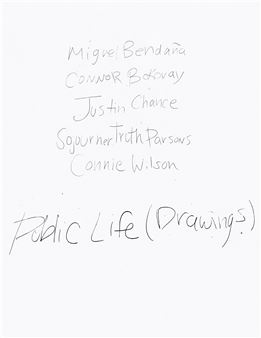 Miguel Bendaña
CONNOR Bokovay
Justin Chance
Sojourner Truth Parsons
Connie Wilson
Public Life (Drawings)